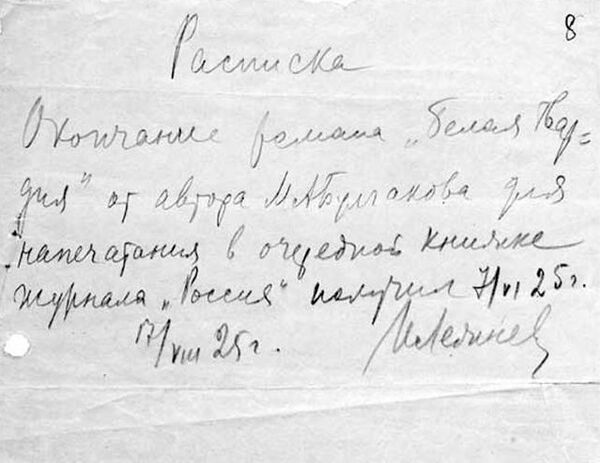 8
Расписка
Окончание романа „Белая Гвар=
дия" от автора М.А.Булгакова для
напечатания в очередной книжке
журнала „Россия" получил 7/VI 25 г.
17/VIII 25 г. И.Лежнев